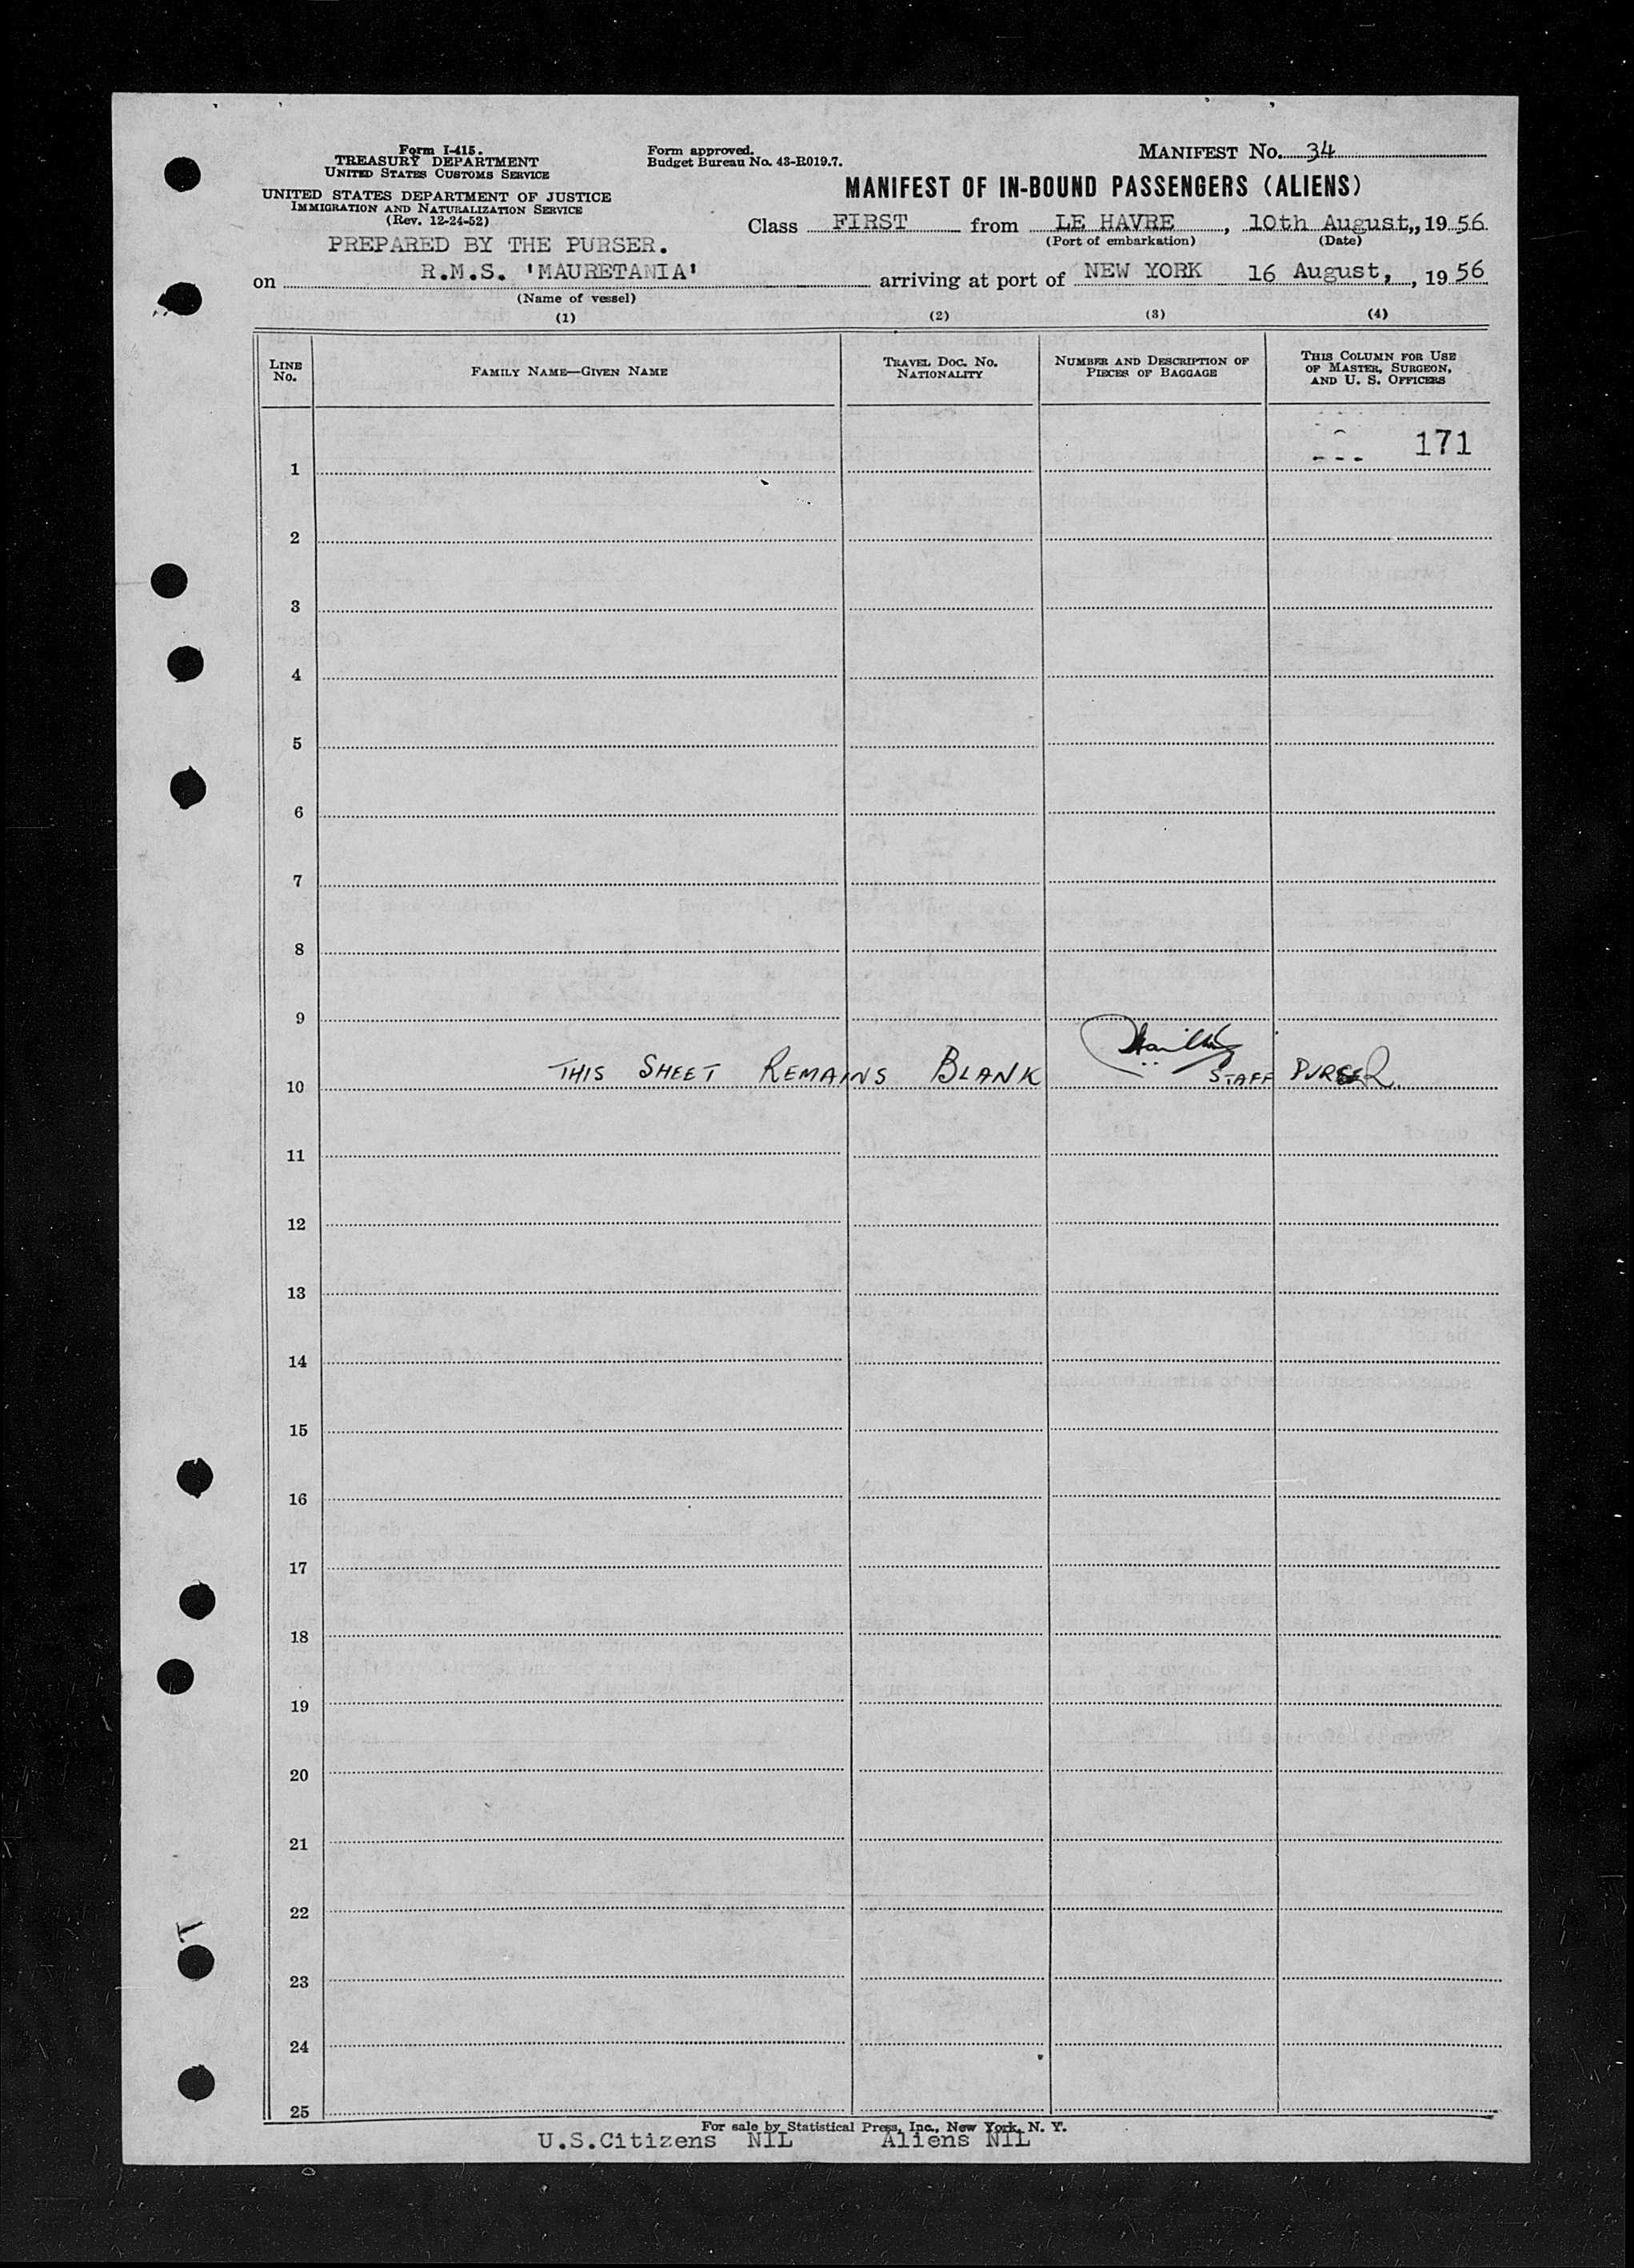 Form I-415.
TREASURY DEPARTMENT
UNITED STATES CUSTOMS SERVICE
UNITED STATES DEPARTMENT OF JUSTICE
IMMIGRATION AND NATURALIZATION SERVICE
(Rev. 12-24-52)
PREPARED BY THE PURSER.
Form approved.
Budget Bureau No. 43-R019.7.
MANIFEST No. 34
MANIFEST OF IN-BOUND PASSENGERS (ALIENS)
Class FIRST from LE HAVRE, 10th August,, 1956
(Port of embarkation) (Date)
on R.M.S. 'MAURETANIA' arriving at port of NEW YORK 16 August, , 1956
(Name of vessel)
(1) (2) (3) (4)
LINE No. FAMILY NAME—GIVEN NAME TRAVEL DOC. No. NATIONALITY NUMBER AND DESCRIPTION OF PIECES OF BAGGAGE THIS COLUMN FOR USE OF MASTER, SURGEON, AND U. S. OFFICERS
171
1
2
3
4
5
6
7
8
9
10 THIS SHEET REMAINS BLANK STAFF PURSER.
11
12
13
14
15
16
17
18
19
20
21
22
23
24
25
For sale by Statistical Press, Inc., New York, N. Y.
U.S.Citizens NIL Aliens NIL